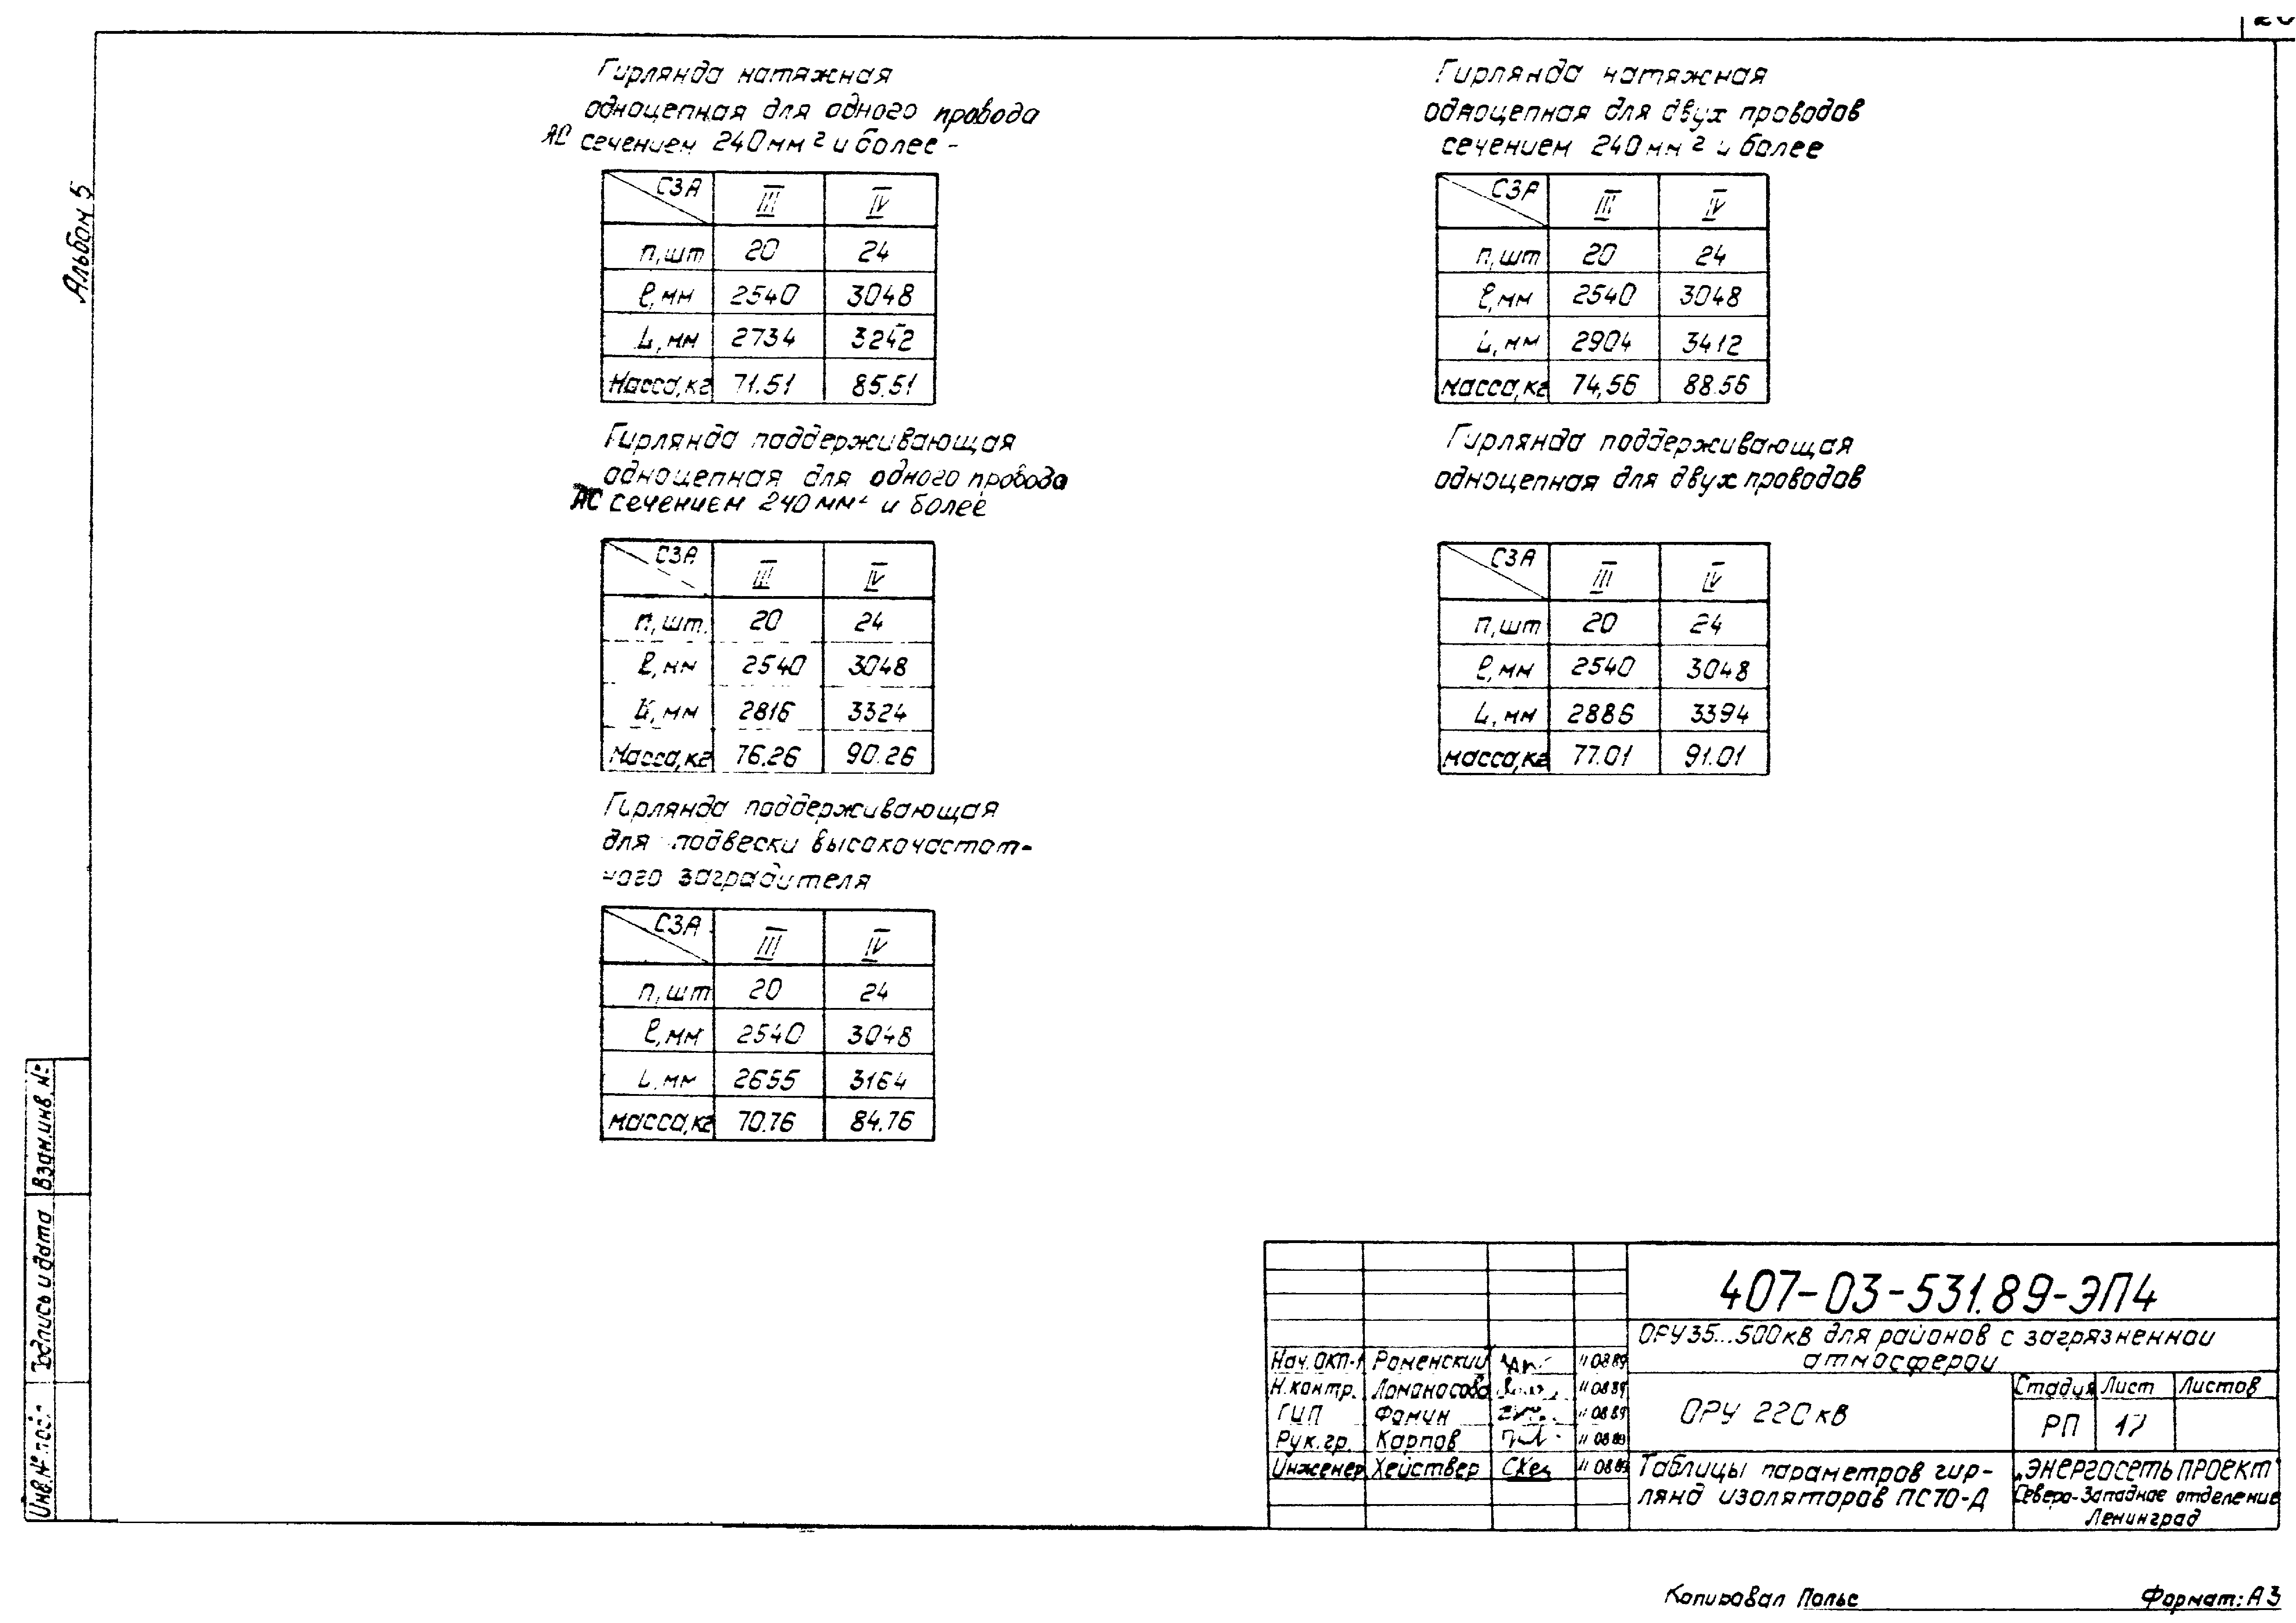 Альбом 5
Гирлянда натяжная
одноцепная для одного провода
АС сечением 240мм² и более -
СЗА III IV
п,шт 20 24
ℓ,мм 2540 3048
L,мм 2734 3242
Масса,кг 71.51 85.51
Гирлянда поддерживающая
одноцепная для одного провода
АС сечением 240мм² и более
СЗА III IV
п,шт. 20 24
ℓ,мм 2540 3048
L,мм 2816 3324
Масса,кг 76.26 90.26
Гирлянда поддерживающая
для подвески высокочастот-
ного заградителя
СЗА III IV
п,шт 20 24
ℓ,мм 2540 3048
L,мм 2655 3164
масса,кг 70.76 84.76
Гирлянда натяжная
одноцепная для двух проводов
сечением 240мм² и более
СЗА III IV
п,шт 20 24
ℓ,мм 2540 3048
L,мм 2904 3412
масса,кг 74,56 88.56
Гирлянда поддерживающая
одноцепная для двух проводов
СЗА III IV
п,шт 20 24
ℓ,мм 2540 3048
L,мм 2886 3394
масса,кг 77.01 91.01
Взам.инв.№
Подпись и дата
Инв.№ подл
407-03-531.89-ЭП4
ОРУ35...500кв для районов с загрязненной
атмосферой
Нач.ОКП-1 Роменский 11 08 89
Н.контр. Ломоносова 11 08 89
ГИП Фомин 11 08 89
Рук.гр. Карпов 11 08 89
Инженер Хействер 11 08 89
ОРУ 220кв
Стадия Лист Листов
РП 17
Таблицы параметров гир-
лянд изоляторов ПС70-Д
„ЭНЕРГОСЕТЬПРОЕКТ"
Северо-Западное отделение
Ленинград
Копировал Польс
Формат: А3